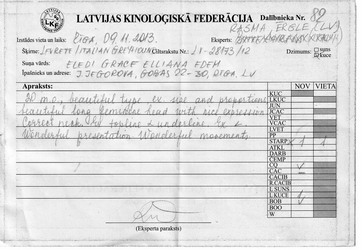 LATVIJAS KINOLOĢISKĀ FEDERĀCIJA
Dalībnieka Nr. 82
Izstādes vieta un laiks: Rīga, 09.11.2013.
Eksperts: RASMA ERGLE (LV)
Šķirne: LEVRETI (ITALIAN GREYHOUND)
Ciltsrakstu Nr.: LV-28173/12
Dzimums: suns
kuce
Suņa vārds: ELEDI GRACE ELLIANA EDEM
Īpašnieks un adrese: J. JEGOROVA, 22-30, RĪGA, LV
Apraksts:
NOV VIETA
20 m.o, beautiful type, ex size and proportions
beautiful long feminine head with nice expression
Correct neck, topline & underline, ex
Wonderful presentation Wonderful movements
KUC
LKUC
JUN
JCAC
VET
VCAC
LVET
PP
STARP 1 1
ATKL
DARB
ČEMP
CQ
CAC
R.CAC
CACIB
R.CACIB
L.SUNS
L.KUCE
BOB
BOO
W
(Eksperta paraksts)